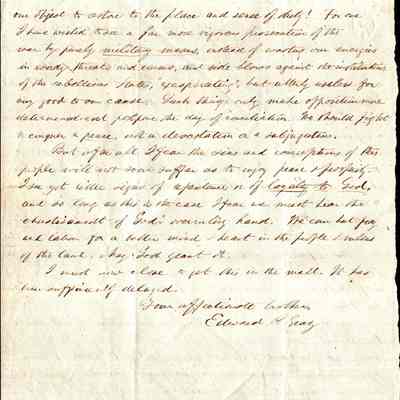 our object to restore to the place and sense of duty! For one
I have wished to see a far more vigorous prosecution of the
war by purely military means, instead of wasting our energies
in wordy threats and and side blows against the institutions
of the rebellious States, "exasperating", but utterly useless for
any good to our cause. Such things only make opposition more
determined and postpone the day of conciliation. We should fight
to conquer a peace, not a devastation or a subjugation.
But after all I fear the sins and corruptions of this
people will not soon suffer us to enjoy peace & prosperity.
I see yet little signs of repentance or of loyalty to God,
and so long as this is the case I fear we must bear the
chastisement of God's avenging hand. We can but pray
and labor for a better mind & heart in the people & rulers
of the land. May God grant it.
I must now close to get this in the mail. It has
been sufficiently delayed.
Your affectionate brother
Edward